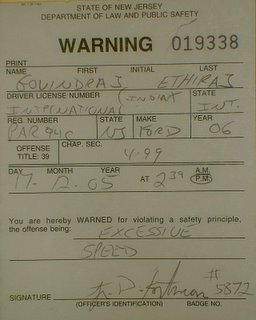 STATE OF NEW JERSEY
DEPARTMENT OF LAW AND PUBLIC SAFETY
WARNING 019338
PRINT
NAME FIRST INITIAL LAST
GOVINDRAJ ETHIRAJ
DRIVER LICENSE NUMBER (INDIA) STATE
INTERNATIONAL INT.
REG. NUMBER STATE MAKE YEAR
PAR 94C NJ FORD 06
OFFENSE CHAP. SEC.
TITLE: 39 4-99
DAY MONTH YEAR A.M.
17 12 05 AT 2 39 P.M.
You are hereby WARNED for violating a safety principle,
the offense being: EXCESSIVE
SPEED
SIGNATURE #5872
(OFFICER'S IDENTIFICATION) BADGE NO.